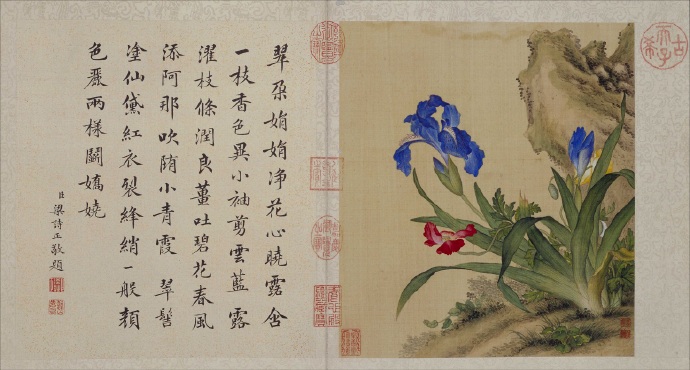 翠朶娟娟净花心曉露含
一枝香色異小袖剪雲藍 露
濯枝條潤良薑吐碧花春風
添阿那吹墮小青霞 翠髻
塗仙黛紅衣裂絳綃一般顏
色麗兩樣鬭嬌嬈
臣梁詩正敬題
古希天子